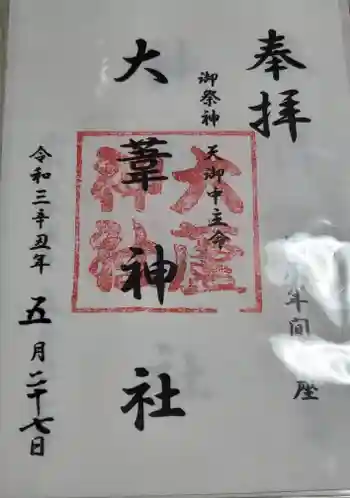 奉拝
年間
座
御祭神 天御中主命
大葦神社
令和三辛丑年 五月二十七日